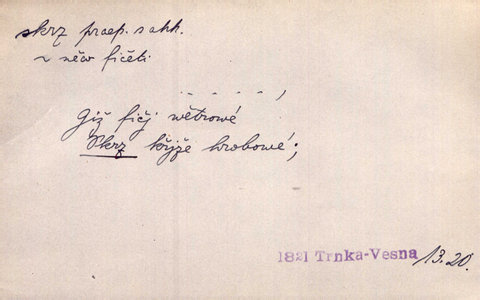 skrz praep. s akk.
v něco fičeti
- - - - - ,
Giž fičj wětrowé
Skrz křjže hrobowé;
1821 Trnka-Vesna 13.20.